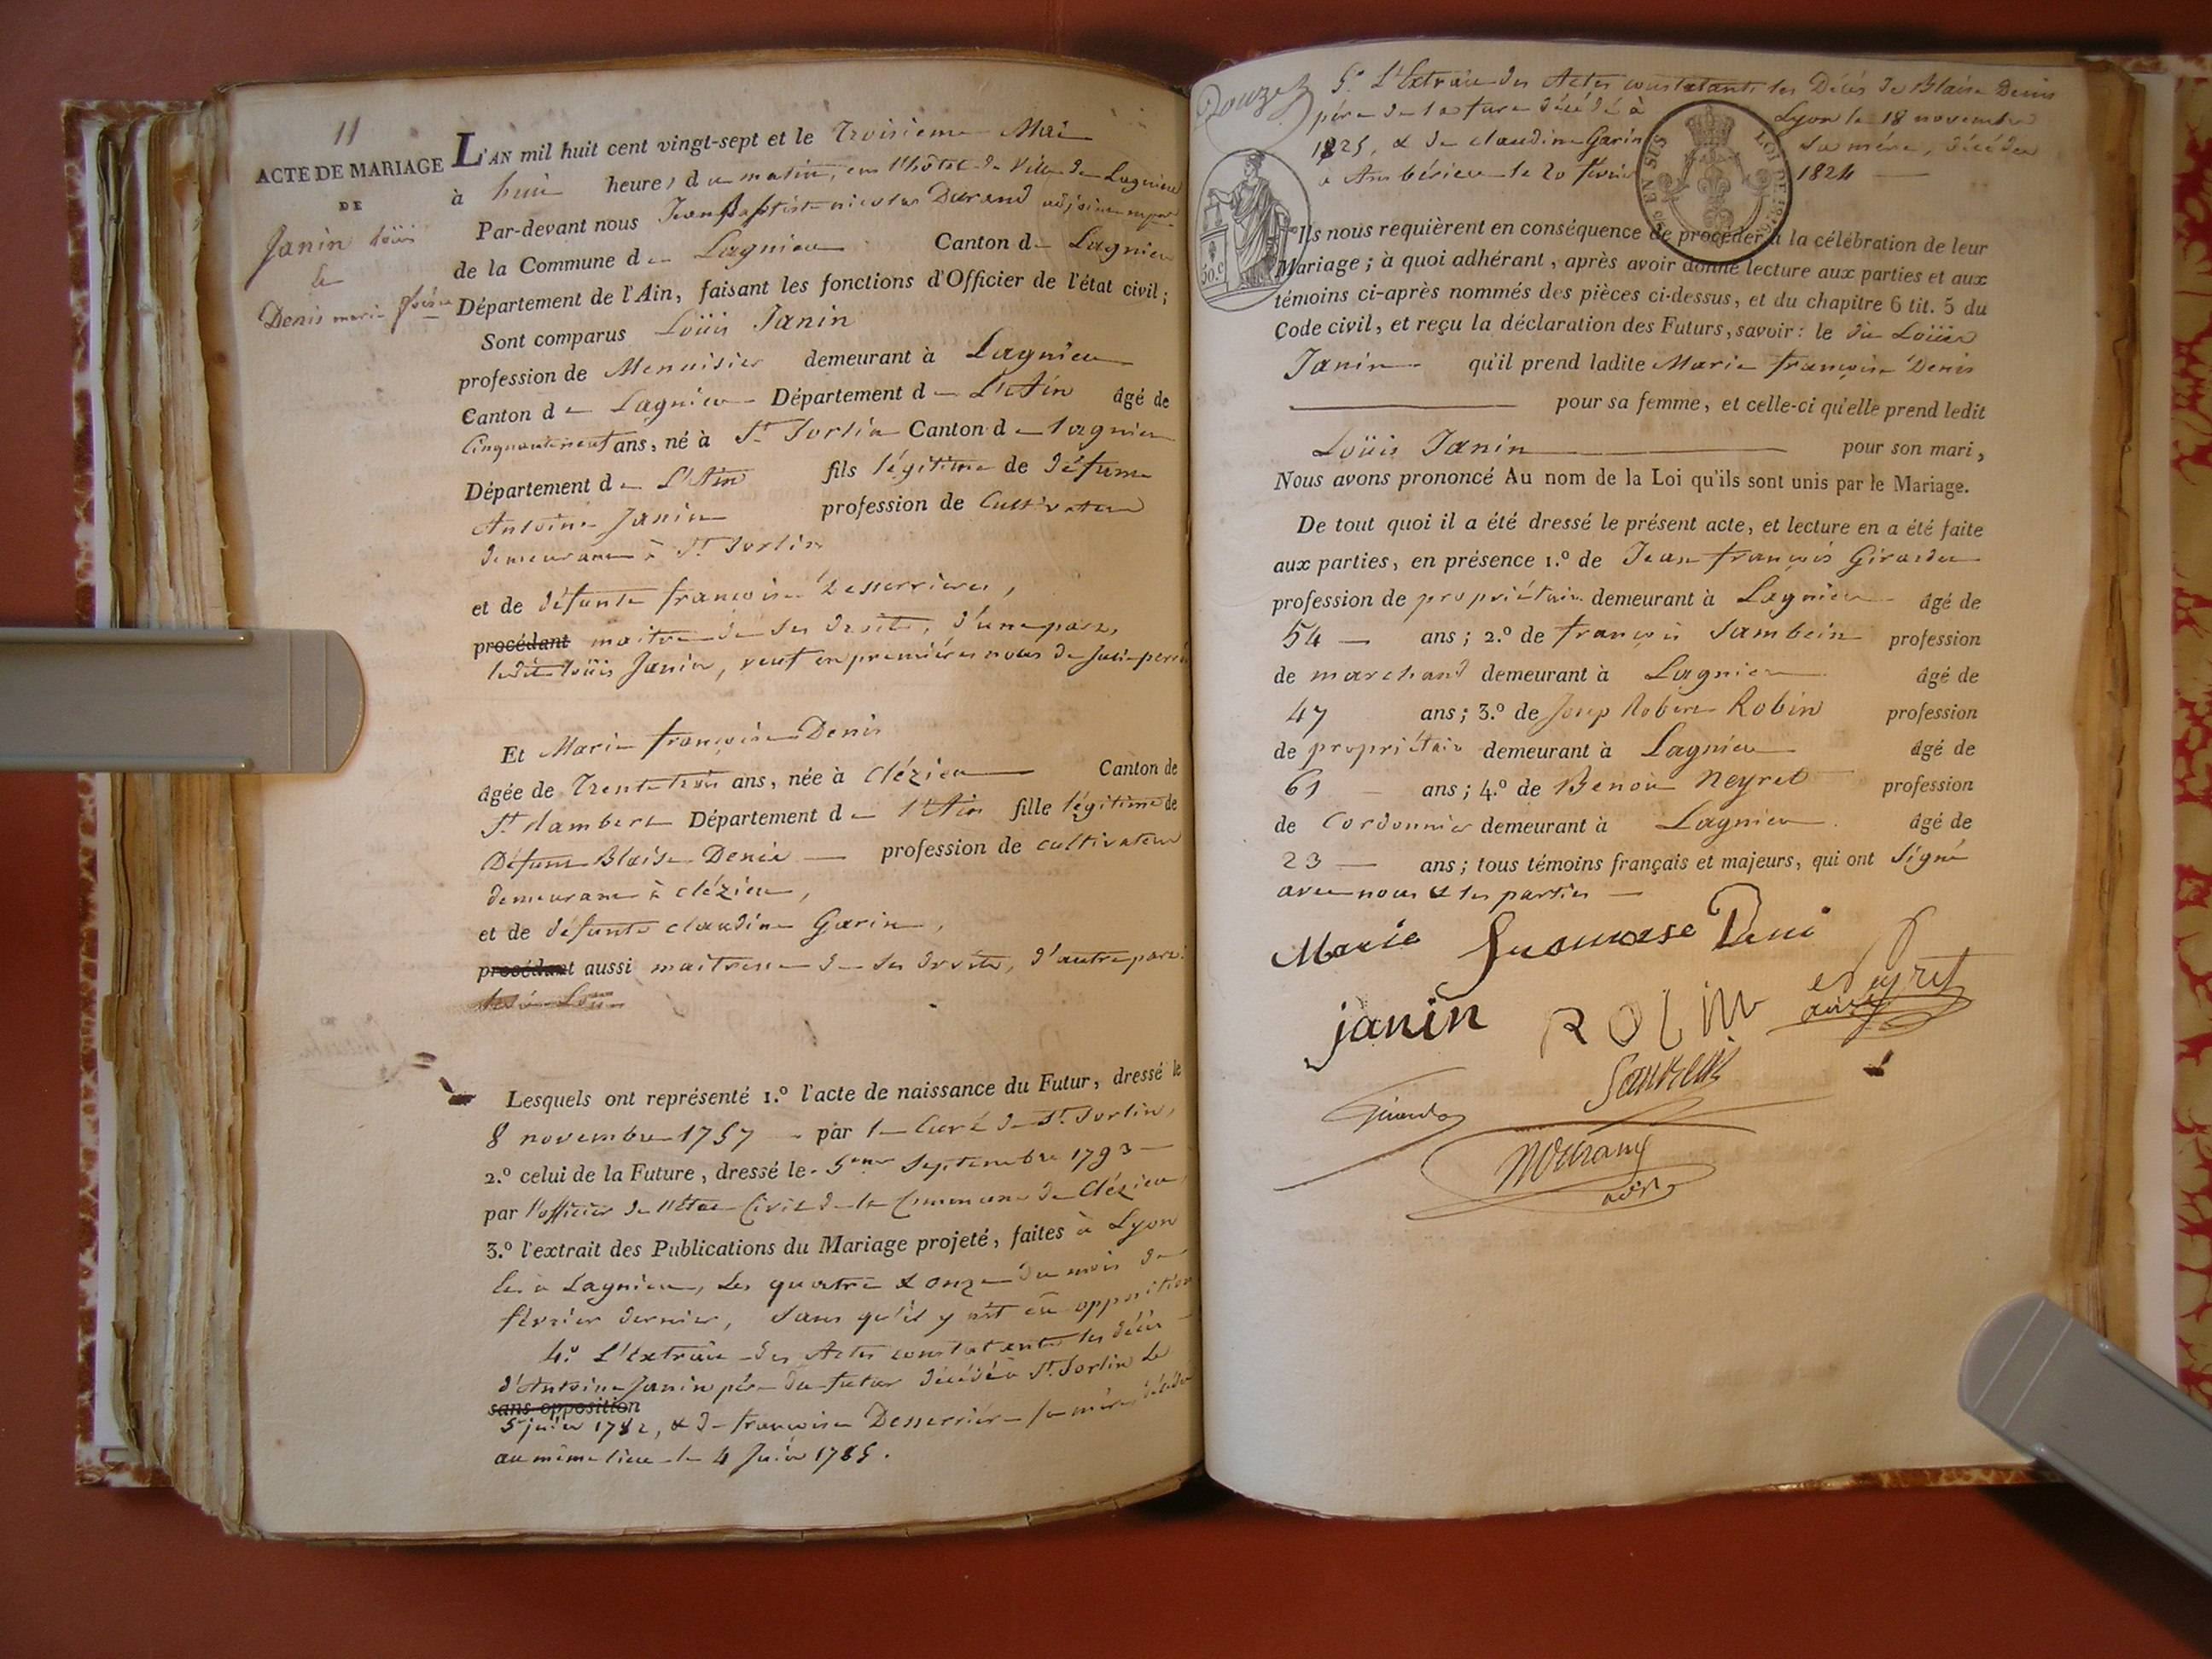 11
ACTE DE MARIAGE
DE
Janin Loüis
&
Denis marie fçoise
L'AN mil huit cent vingt-sept et le Troisieme Mai
à huit heures du matin, en l'hôtel de Ville de Lagnieu
Par-devant nous Jean Baptiste nicolas Durand adjoint
de la Commune de Lagnieu Canton de Lagnieu
Département de l'Ain, faisant les fonctions d'Officier de l'état civil;
Sont comparus Loüis Janin
profession de Menuisier demeurant à Lagnieu
Canton de Lagnieu Département de L'Ain âgé de
Cinquanteneuf ans, né à St Sorlin Canton de Lagnieu
Département de L'Ain fils légitime de défunt
Antoine Janin profession de Cultivateur
demeurant à St Sorlin
et de défunte françoise Desserriere,
procédant maitre de ses droits, d'une part,
ledit Loüis Janin, veuf en premières noces de
Et Marie françoise Denis
âgée de Trente trois ans, née à Clézieu Canton de
St Rambert Département de l'Ain fille légitime de
Défunt Blaise Denis profession de cultivateur
demeurant à Clézieu,
et de défunte claudine Garin,
procédant aussi maitresse de ses droits, d'autre part.
Lesquels ont représenté 1.º l'acte de naissance du Futur, dressé le
8 novembre 1757 par le Curé de St Sorlin,
2.º celui de la Future, dressé le 5eme Septembre 1793
par l'officier de l'état Civil de la Commune de Clézieu,
3.º l'extrait des Publications du Mariage projeté, faites à Lyon
& à Lagnieu, les quatre & onze du mois de
février dernier, sans qu'il y ait eû opposition
4.º L'extrait des Actes constatants les décès
d'Antoine Janin père du futur décédé à St Sorlin le
sans opposition
5 1782, & de françoise Desserriére sa mère, décédée
au même lieu le 4 Juin 1785.
Douzet
5.º L'Extrait des Actes constatants les Décès de Blaise Denis
père de la future décédé à Lyon le 18 novembre
1825, & de claudine Garin sa mére, décédée
à Ambérieu le 20 février 1824
EN SUS
LOI DE
50.c
Ils nous requièrent en conséquence de procéder à la célébration de leur
Mariage; à quoi adhérant, après avoir donné lecture aux parties et aux
témoins ci-après nommés des pièces ci-dessus, et du chapitre 6 tit. 5 du
Code civil, et reçu la déclaration des Futurs, savoir: le dit Loüis
Janin qu'il prend ladite Marie françoise Denis
pour sa femme, et celle-ci qu'elle prend ledit
Loüis Janin pour son mari,
Nous avons prononcé Au nom de la Loi qu'ils sont unis par le Mariage.
De tout quoi il a été dressé le présent acte, et lecture en a été faite
aux parties, en présence 1.º de Jean françois Girardet
profession de propriétaire demeurant à Lagnieu âgé de
54 ans; 2.º de françois Sambein profession
de marchand demeurant à Lagnieu âgé de
47 ans; 3.º de Robin profession
de propriétaire demeurant à Lagnieu âgé de
61 ans; 4.º de Benoit Neyret profession
de Cordonnier demeurant à Lagnieu âgé de
23 ans; tous témoins français et majeurs, qui ont signé
avec nous & les parties
Marie Deni
janin ROBIN Neyret